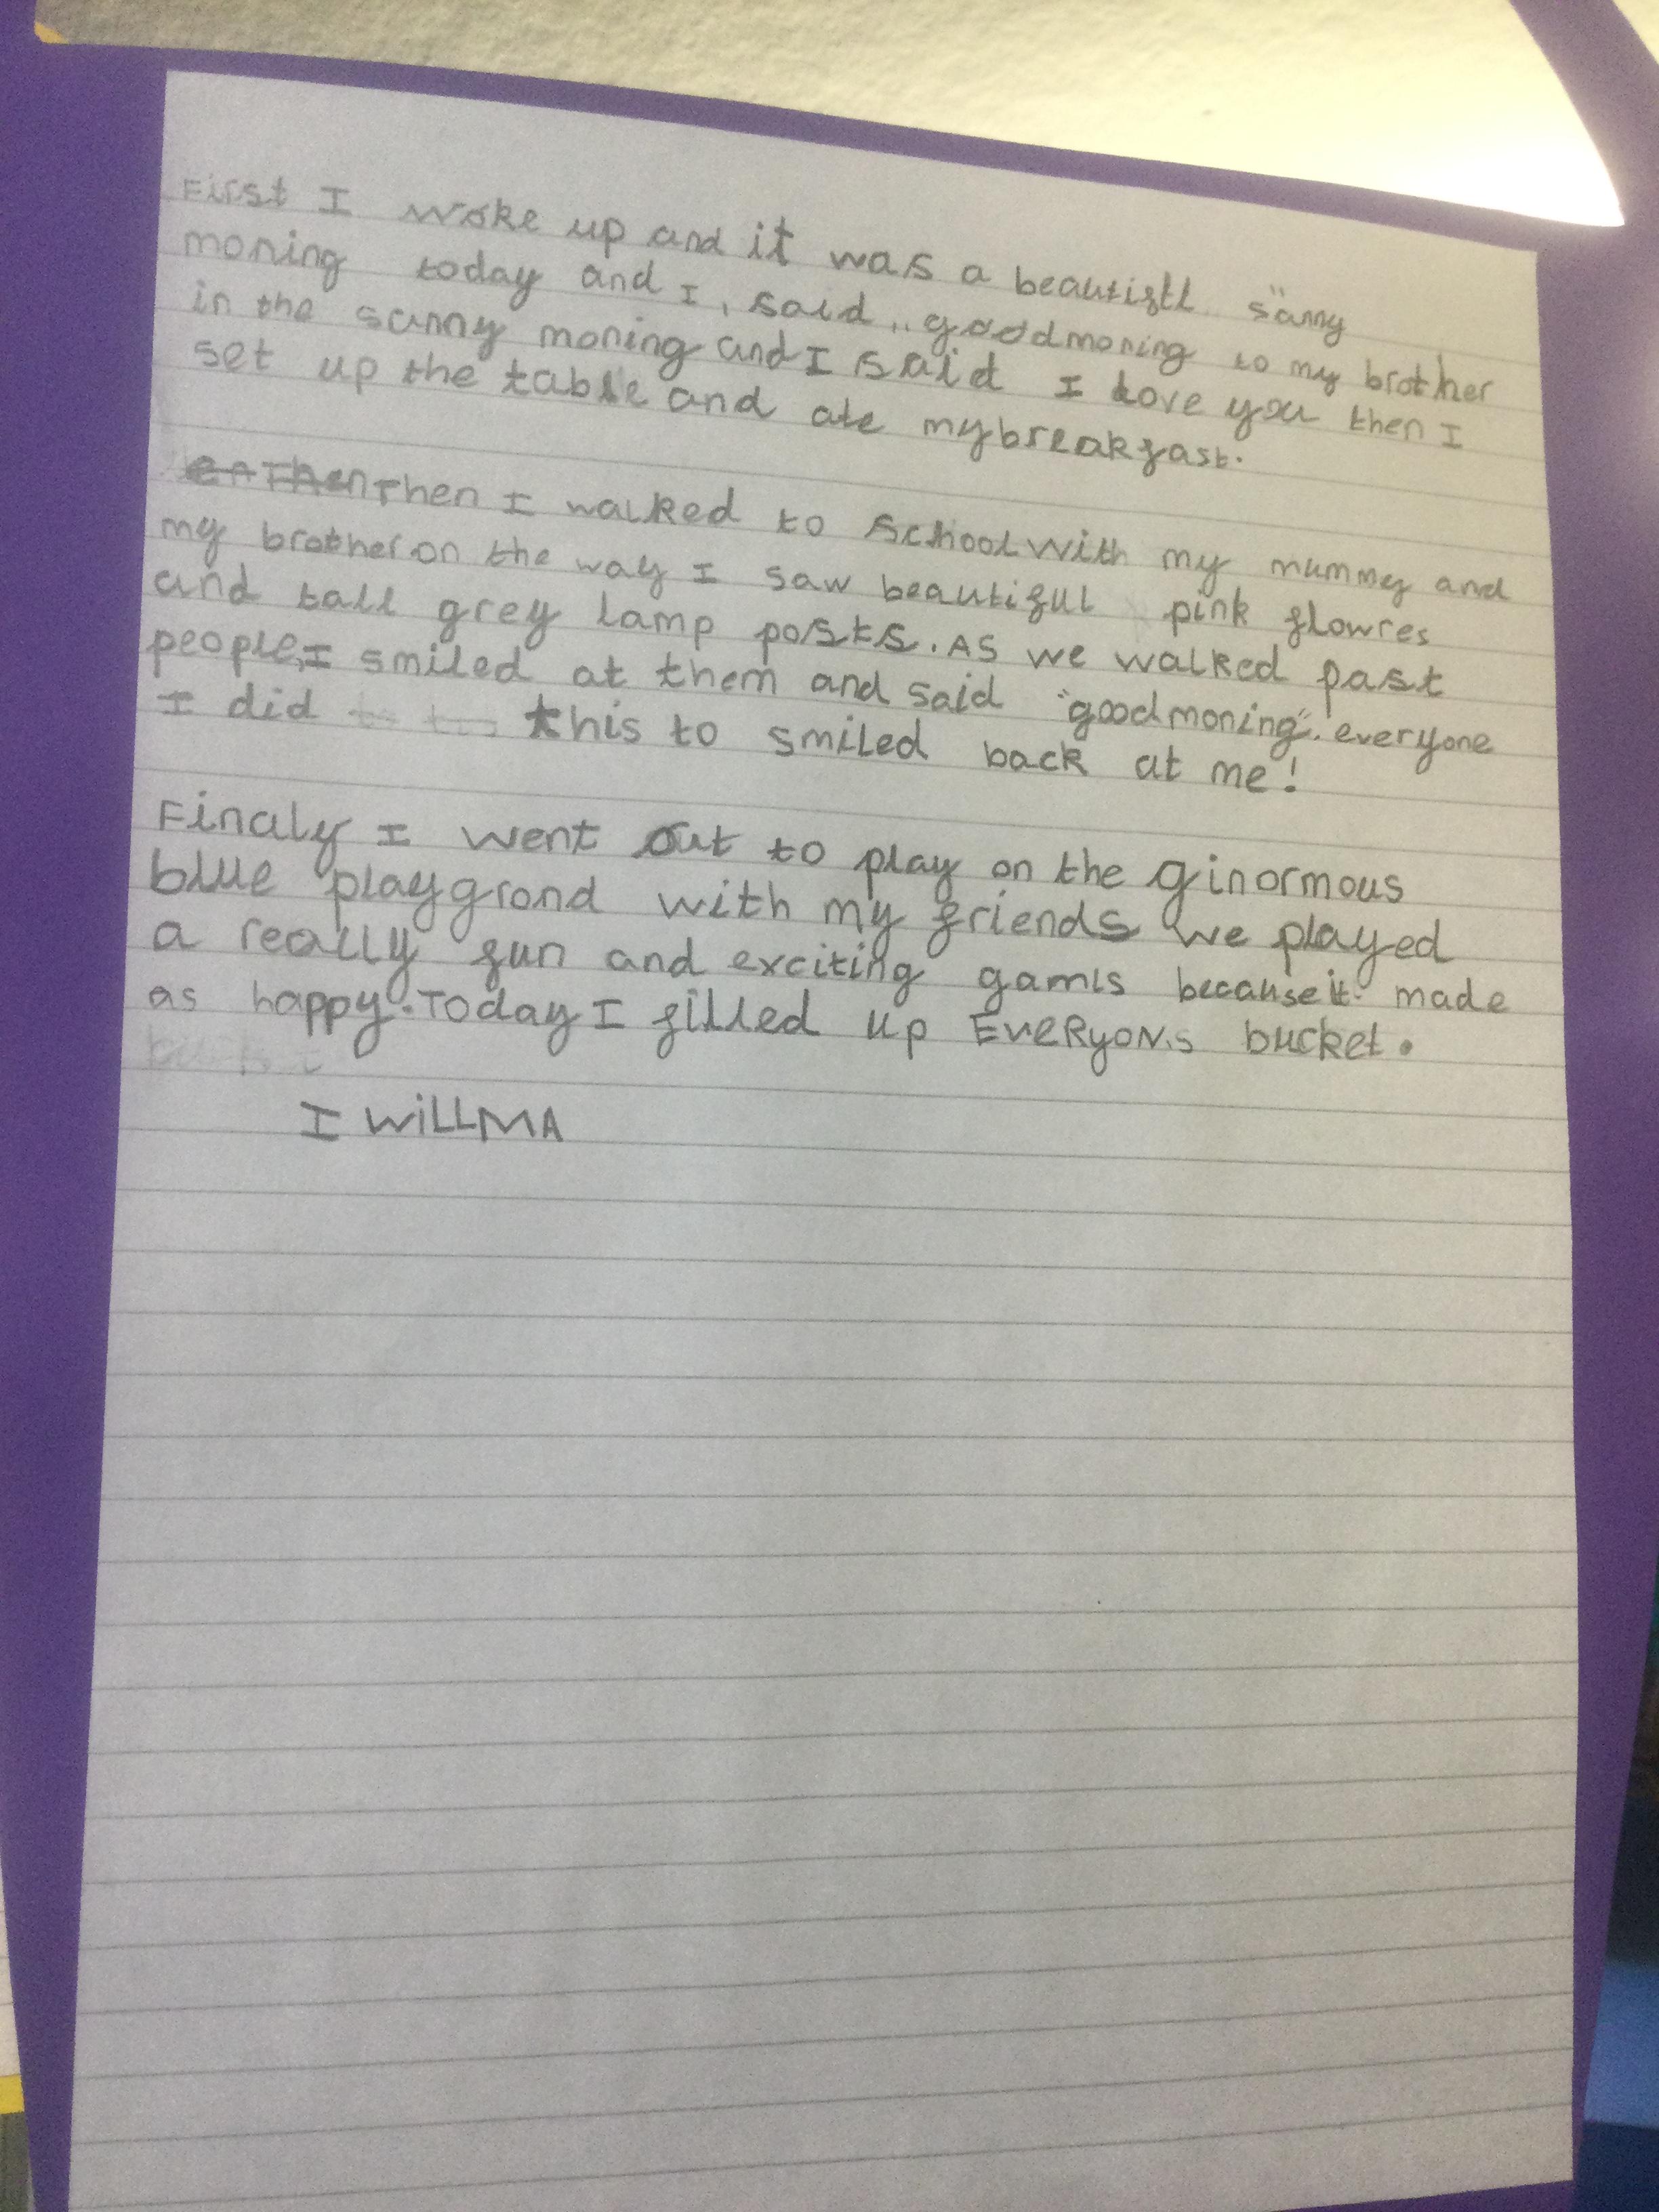 First I woke up and it was a beautisfll sunny
moning today and I, said ,, goodmoning to my brother
in the sunny moning and I said I love you then I
set up the table and ate mybreakfast.
enThenThen I walked to school with my mummy and
my brother on the way I saw beautiful pink flowres
and tall grey lamp posts. As we walked past
people, I smiled at them and said "goodmoning". everyone
I did this to smiled back at me!
Finaly I went out to play on the ginormous
blue playgrond with my friends we played
a really fun and exciting gamis because it made
as happy. Today I filled up EveRyoN,s bucket.
I WiLLMA